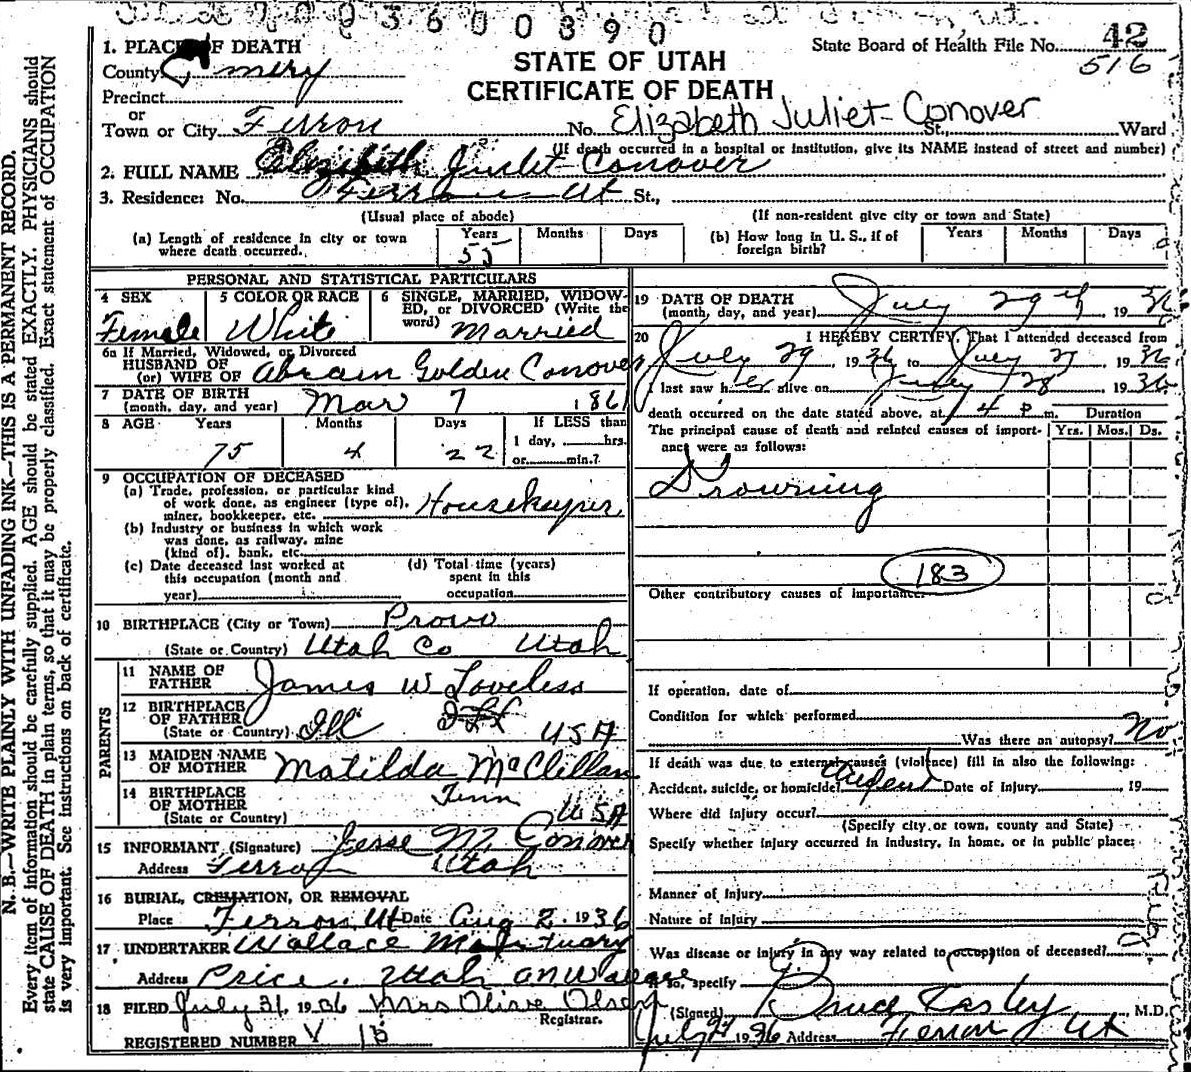 9 0 9 3 6 0 0 3 9 0
1. PLACE OF DEATH
County Emery
Precinct
or
Town or City Ferron
STATE OF UTAH
CERTIFICATE OF DEATH
State Board of Health File No. 42
516
No. Elizabeth Juliet Conover St., Ward
(If death occurred in a hospital or institution, give its NAME instead of street and number)
2. FULL NAME Elizibith Juliet Conover
3. Residence: No. Ferron Ut St.,
(Usual place of abode)
(If non-resident give city or town and State)
(a) Length of residence in city or town where death occurred. Years 55 Months Days
(b) How long in U. S., if of foreign birth? Years Months Days
PERSONAL AND STATISTICAL PARTICULARS
4 SEX
Female
5 COLOR OR RACE
White
6 SINGLE, MARRIED, WIDOWED, or DIVORCED (Write the word) Married
6a If Married, Widowed, or Divorced
HUSBAND OF
(or) WIFE OF Abram Golden Conover
7 DATE OF BIRTH
(month, day, and year) Mar 7 1861
8 AGE Years Months Days If LESS than
75 4 22 1 day, hrs.
or min.?
9 OCCUPATION OF DECEASED
(a) Trade, profession, or particular kind
of work done, as engineer (type of),
miner, bookkeeper, etc. Housekeeper
(b) Industry or business in which work
was done, as railway, mine
(kind of), bank, etc.
(c) Date deceased last worked at
this occupation (month and
year)
(d) Total time (years)
spent in this
occupation
10 BIRTHPLACE (City or Town) Provo
(State or Country) Utah Co Utah
PARENTS
11 NAME OF
FATHER James W Loveless
12 BIRTHPLACE
OF FATHER
(State or Country) Ill USA
13 MAIDEN NAME
OF MOTHER Matilda McClillan
14 BIRTHPLACE
OF MOTHER Tenn
(State or Country) USA
15 INFORMANT (Signature) Jesse M Conover
Address Ferron Utah
16 BURIAL, CREMATION, OR REMOVAL
Place Ferron Ut Date Aug 2. 1936
17 UNDERTAKER Wallace Mortuary
Address Price. Utah ON Wallace
18 FILED July 31, 1936 Mrs Olive Olsen
Registrar.
REGISTERED NUMBER V 15
19 DATE OF DEATH
(month, day, and year) July 29th 1936
20 I HEREBY CERTIFY, That I attended deceased from
July 29 1936 to July 29 1936
I last saw her alive on July 28 1936
death occurred on the date stated above, at 4 p m. Duration
The principal cause of death and related causes of importance were as follows: Yrs. Mos. Ds.
Drowning
183
Other contributory causes of importance.
If operation, date of
Condition for which performed
Was there an autopsy? No
If death was due to external causes (violence) fill in also the following:
Accident, suicide, or homicide? Date of Injury 19
Where did injury occur?
(Specify city or town, county and State)
Specify whether injury occurred in industry, in home, or in public place:
Manner of Injury
Nature of Injury
Was disease or injury in any way related to occupation of deceased?
If so, specify
(Signed) Bruce Easley, M.D.
July 1936 Address Ferron Ut
N. B.—WRITE PLAINLY WITH UNFADING INK—THIS IS A PERMANENT RECORD.
Every item of information should be carefully supplied. AGE should be stated EXACTLY. PHYSICIANS should
state CAUSE OF DEATH in plain terms, so that it may be properly classified. Exact statement of OCCUPATION
is very important. See instructions on back of certificate.